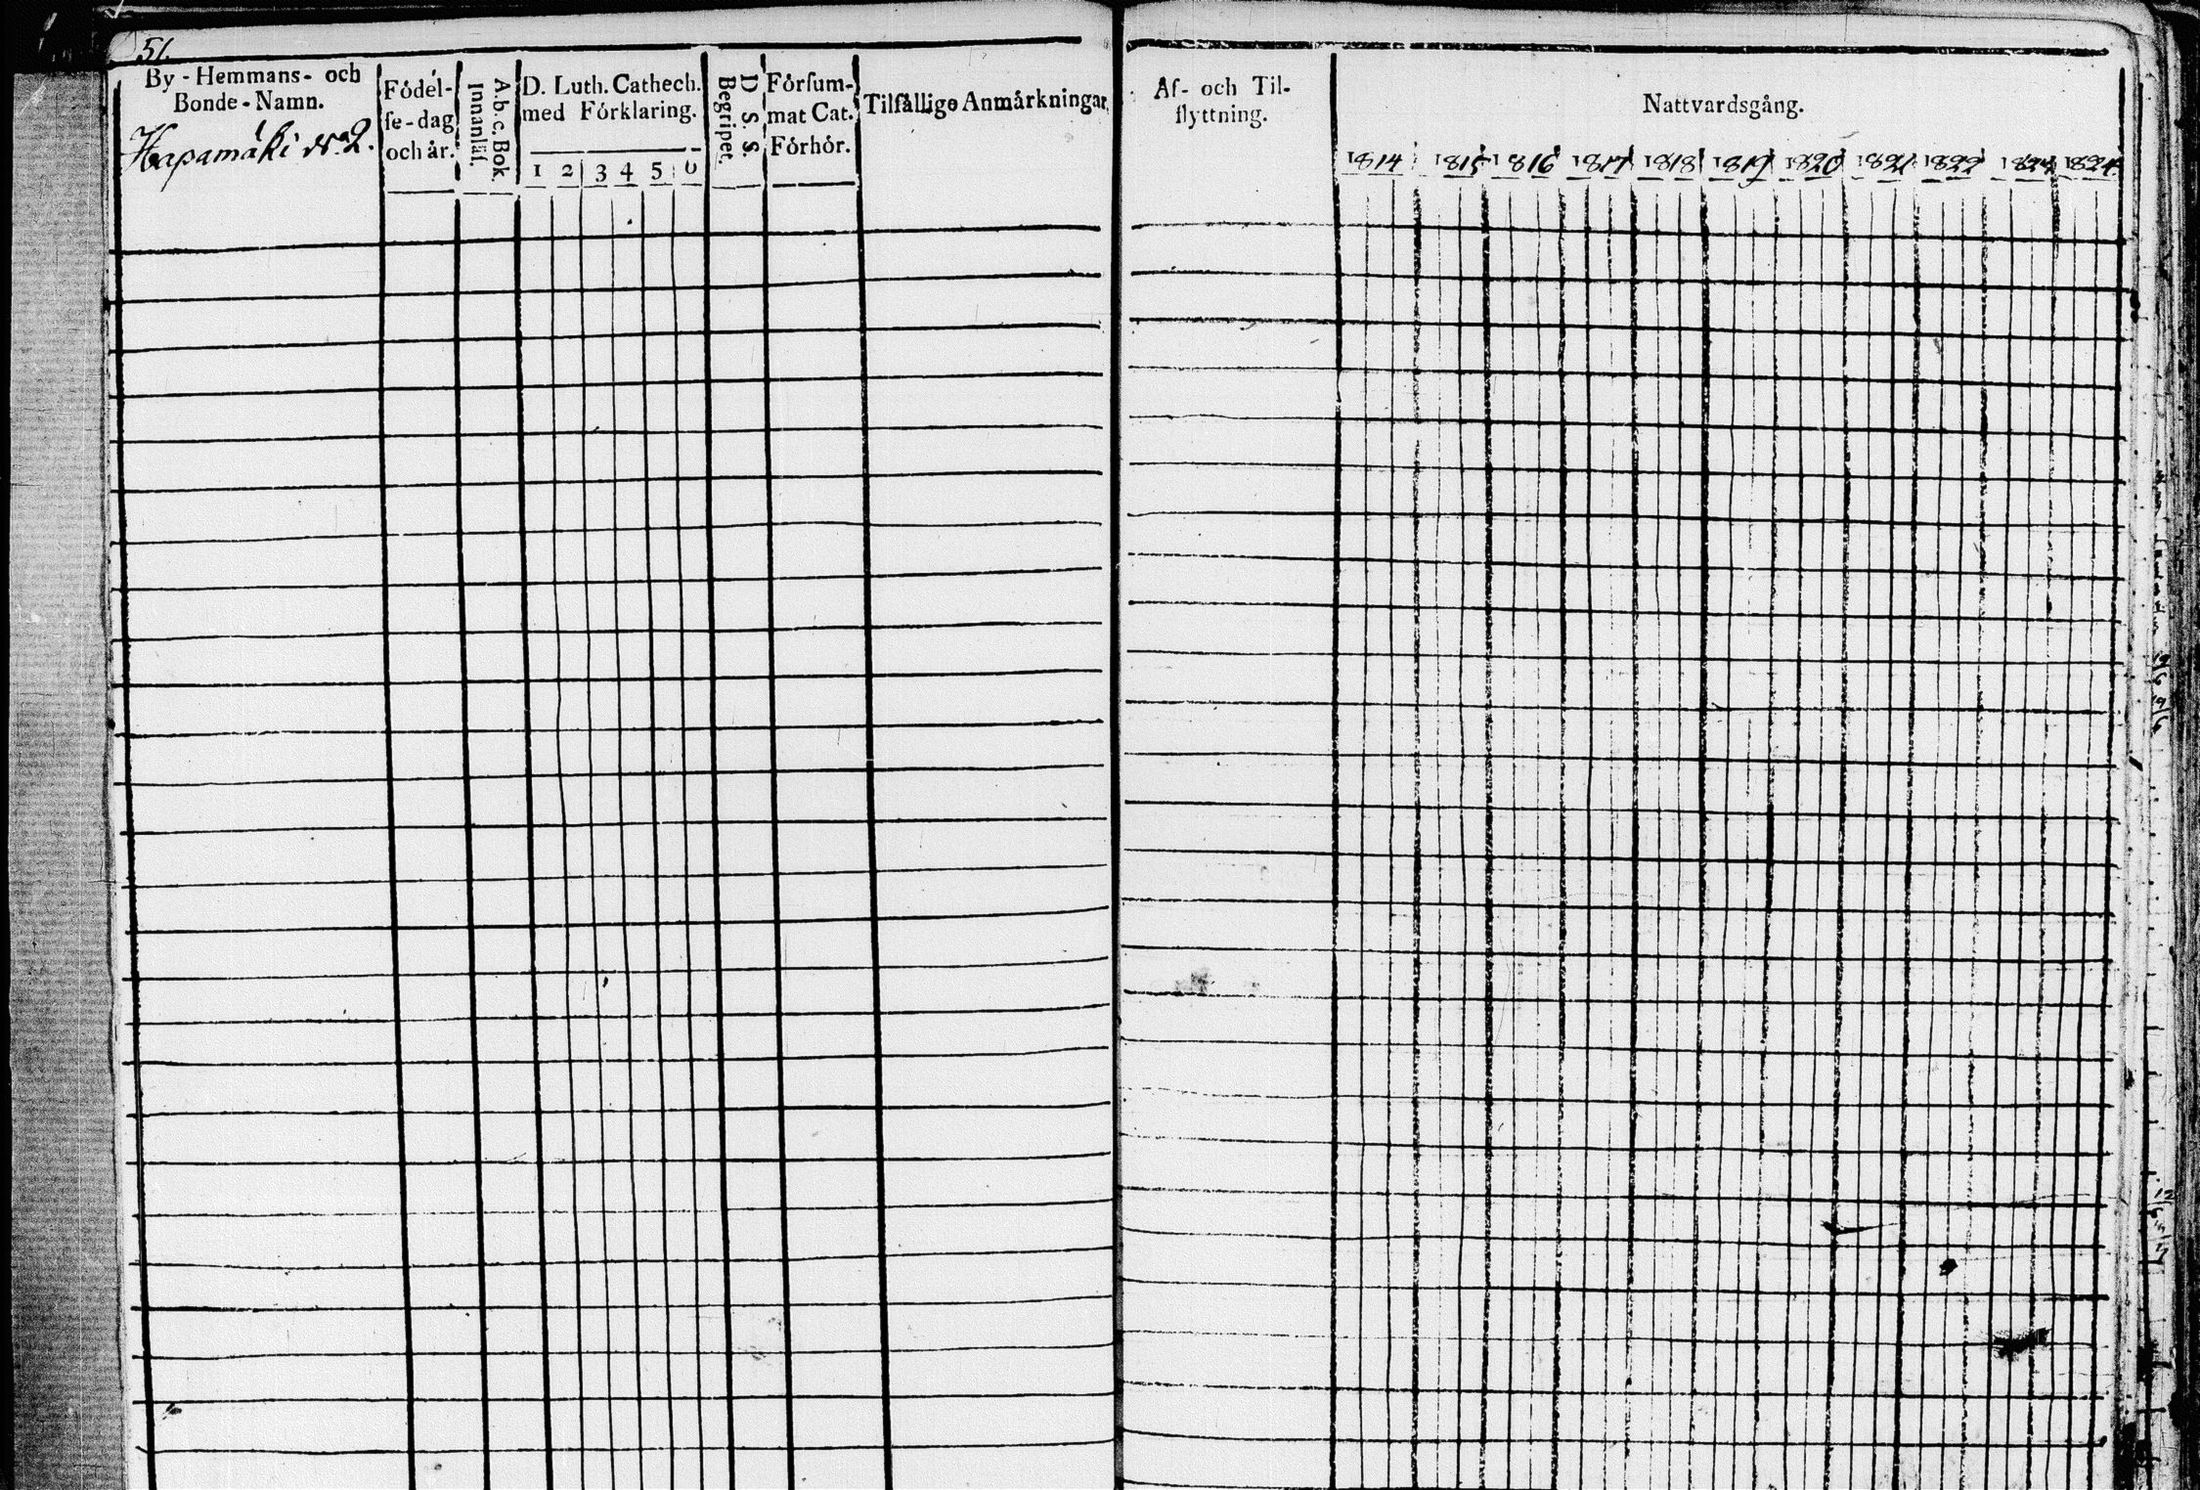 51.
By-Hemmans- och
Bonde-Namn.
Hapamäki No 2.
Födel-
ſe-dag
och år.
A.b.c. Bok
Innanläſ.
D. Luth. Cathech.
med Förklaring.
1 2 3 4 5 6
D. S. S.
Begripet.
Förſum-
mat Cat.
Förhör.
Tilfällige Anmärkningar.
Af- och Til-
flyttning.
Nattvardsgång.
1814 1815 1816 1817 1818 1819 1820 1821 1822 1823 1824